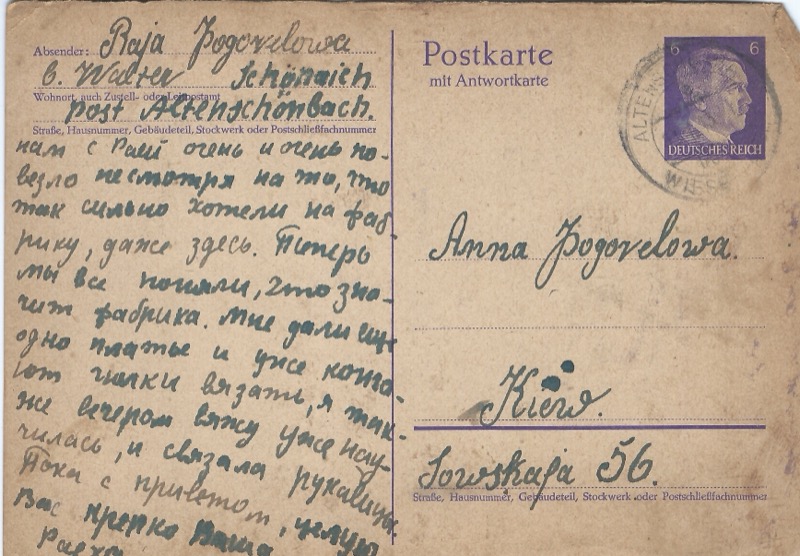 Absender: Raja Pogorelowa
b. Walter Schönaich
Wohnort, auch Zustell- oder Leitpostamt
Post Altenschönbach.
Straße, Hausnummer, Gebäudeteil, Stockwerk oder Postschließfachnummer
нам с Раей очень и очень по-
везло несмотря на то, что
так сильно хотели на фаб-
рику, даже здесь. Теперь
мы все поняли, что зна-
чит фабрика. Мне дали еще
одно платье и уже конча-
ют чулки вязать, я так-
же вечером вяжу уже нау-
чилась, и связала рукавицы.
Пока с приветом, целую
Вас крепко Ваша
Раеха
Postkarte
mit Antwortkarte
6 6
DEUTSCHES REICH
ALTENS
WIES
Anna Pogorelowa.
Kiew.
Sowskaja 56.
Straße, Hausnummer, Gebäudeteil, Stockwerk oder Postschließfachnummer